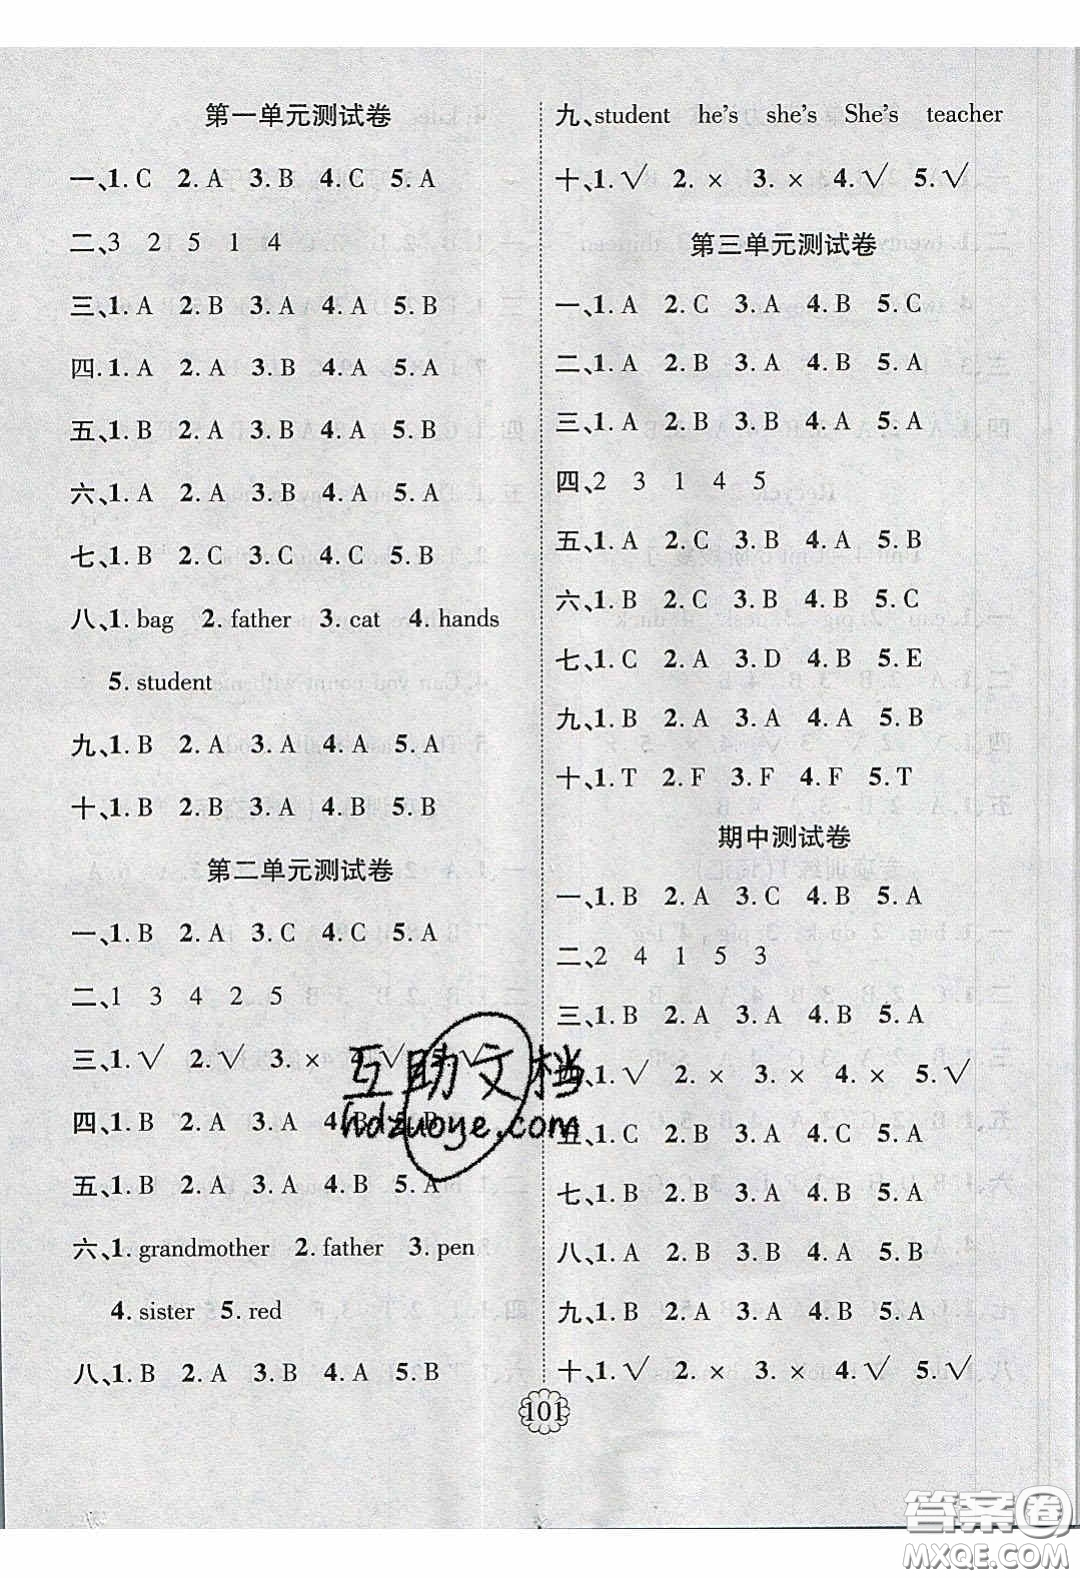 第一单元测试卷
一、1. C 2. A 3. B 4. C 5. A
二、3 2 5 1 4
三、1. A 2. B 3. A 4. A 5. B
四. 1. A 2. A 3. B 4. A 5. A
五、1. B 2. A 3. B 4. A 5. B
六、1. A 2. A 3. B 4. A 5. A
七、1. B 2. C 3. C 4. C 5. B
八、1. bag 2. father 3. cat 4. hands
5. student
九、1. B 2. A 3. A 4. A 5. A
十、1. B 2. B 3. A 4. B 5. B
第二单元测试卷
一、1. B 2. A 3. C 4. C 5. A
二、1 3 4 2 5
三、1. √ 2. √ 3. × √
四、1. B 2. A 3. A 4. B 5. B
五、1. B 2. A 3. A 4. B 5. A
六、1. grandmother 2. father 3. pen
4. sister 5. red
八、1. B 2. A 3. B 4. A 5. B
九、student he's she's She's teacher
十、1. √ 2. × 3. × 4. √ 5. √
第三单元测试卷
一、1. A 2. C 3. A 4. B 5. C
二、1. A 2. A 3. B 4. B 5. A
三、1. A 2. B 3. B 4. A 5. A
四、2 3 1 4 5
五、1. A 2. C 3. B 4. A 5. B
六、1. B 2. C 3. B 4. B 5. C
七、1. C 2. A 3. D 4. B 5. E
九、1. B 2. A 3. B 4. A 5. B
十、1. T 2. F 3. F 4. F 5. T
期中测试卷
一、1. B 2. A 3. C 4. B 5. A
二、2 4 1 5 3
三、1. B 2. A 3. A 4. B 5. A
四、1. √ 2. × 3. × 4. × 5. √
五、1. C 2. B 3. A 4. C 5. A
七、1. B 2. B 3. A 4. B 5. A
八、1. A 2. B 3. B 4. A 5. B
九、1. B 2. A 3. A 4. B 5. A
十、1. √ 2. × 3. × 4. √ 5. √
101
互助文档
hdzuoye.com
答案圈
MXQE.COM